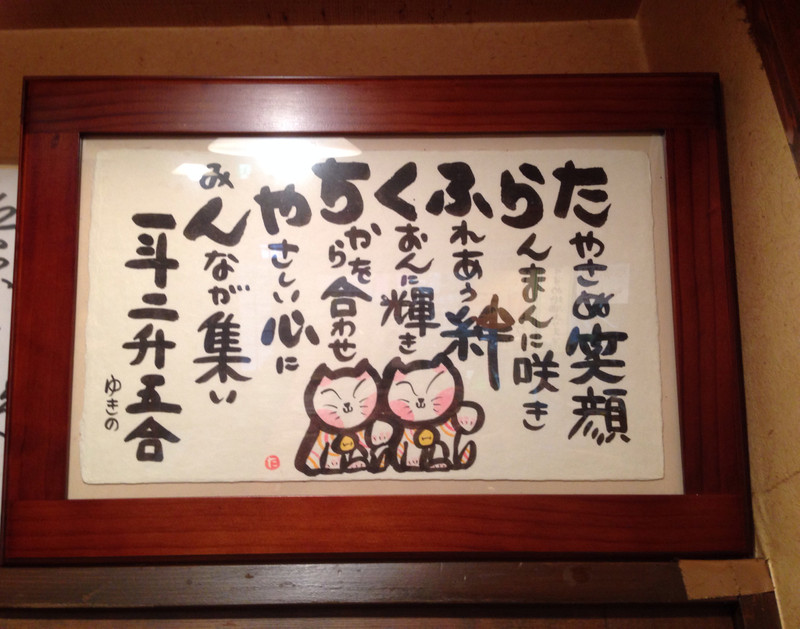 たやさぬ笑顔
らんまんに咲き
ふれあう絆
くおんに輝き
ちからを合わせ
やさしい心に
みんなが集い
一斗二升五合
ゆきの